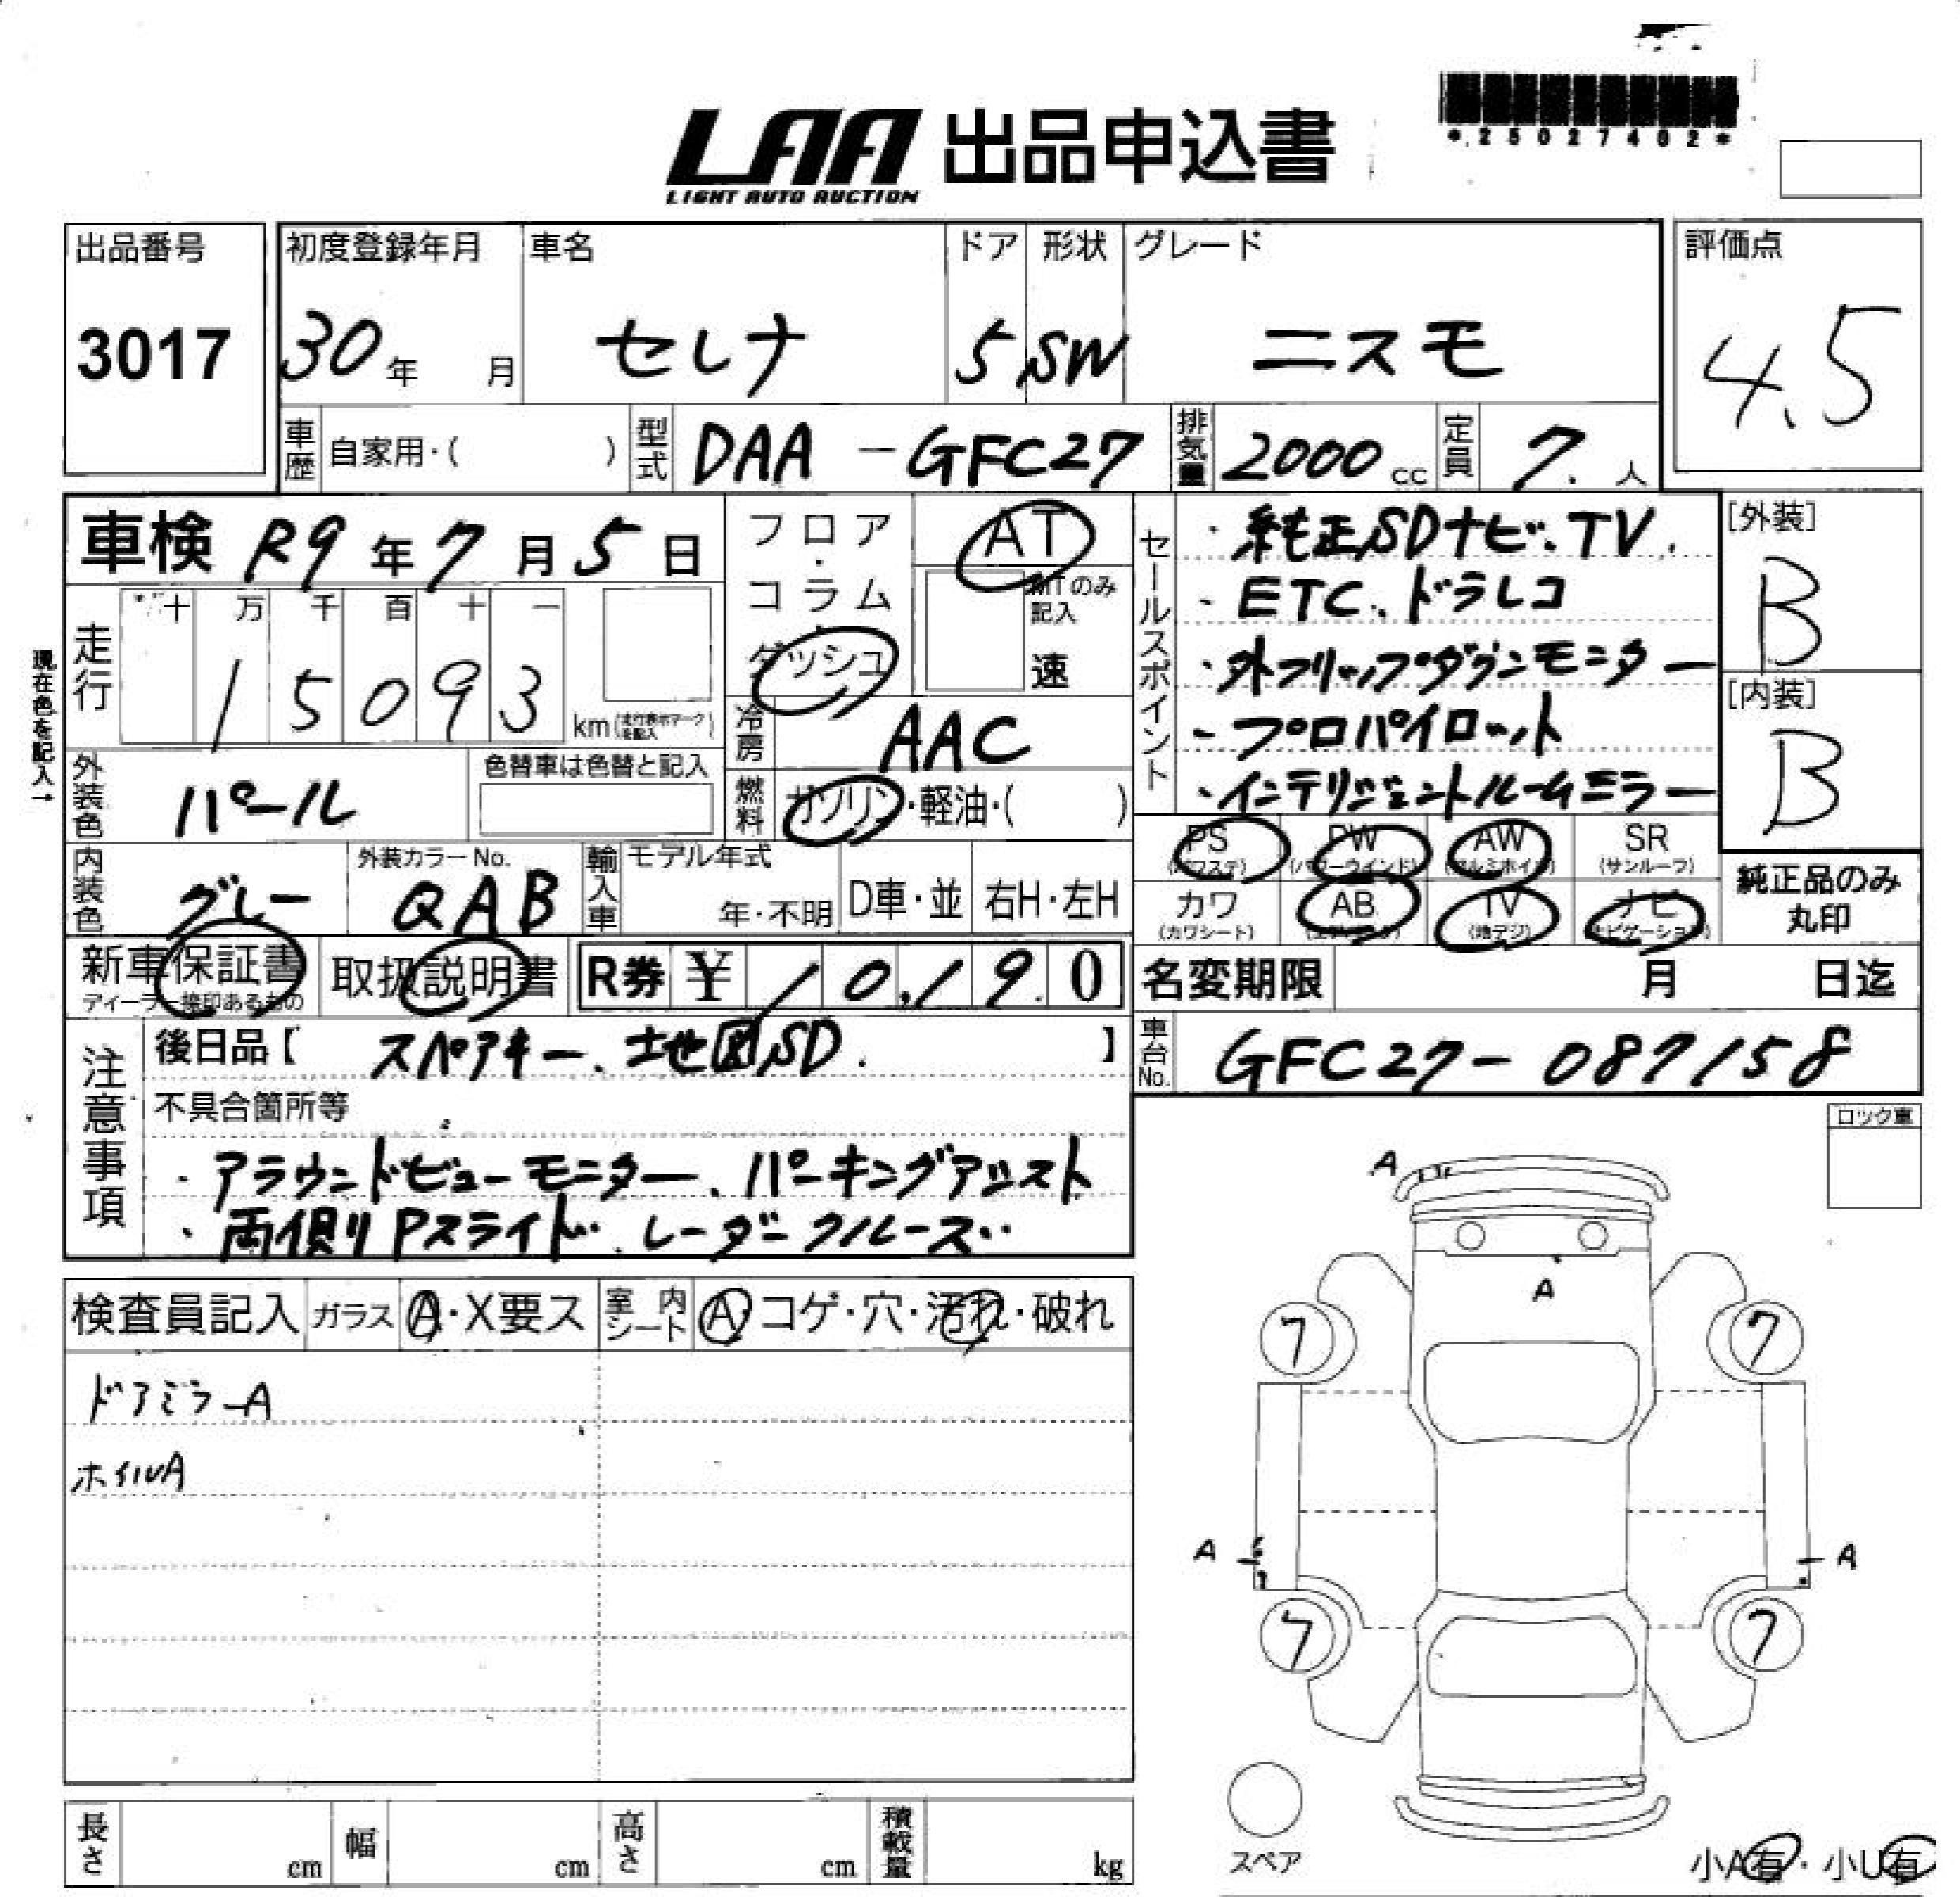 LAA 出品申込書
LIGHT AUTO AUCTION
*25027402*
出品番号 初度登録年月 車名 ドア 形状 グレード 評価点
3017 30年 月 セレナ 5 SW ニスモ 4.5
車歴 自家用・( ) 型式 DAA-GFC27 排気量 2000cc 定員 7.人
車検 R9年7月5日
フロア・コラム・ダッシュ
AT
MTのみ記入
速
セールスポイント
・純正SDナビ、TV.
・ETC、ドラレコ
・外フリップダウンモニター
・プロパイロット
・インテリジェントルームミラー
[外装]
B
[内装]
B
現在色を記入→
走行 十 万 千 百 十 一
15093 km(走行表示マークを記入)
冷房 AAC
外装色 パール 色替車は色替と記入
燃料 ガソリン・軽油・( )
PS PW AW SR
(パワステ) (パワーウインド) (アルミホイル) (サンルーフ)
カワ AB TV ナビ
(カワシート) (エアバック) (地デジ) (ナビゲーション)
純正品のみ丸印
内装色 グレー 外装カラーNo. QAB 輸入車 モデル年式 年・不明 D車・並 右H・左H
新車保証書 取扱説明書 R券 ¥ 10,190 名変期限 月 日迄
ディーラー捺印あるもの
車台No. GFC27-087158
注意事項
後日品【 スペアキー、地図SD. 】
不具合箇所等
・アラウンドビューモニター、パーキングアシスト
・両側Pスライド、レーダークルーズ..
ロック車
検査員記入 ガラス A・X要ス 室内シート A コゲ・穴・汚れ・破れ
ドアミラーA
ホイルA
A
A
7 7
A A
7 7
スペア
小A有・小U有
長さ cm 幅 cm 高さ cm 積載量 kg